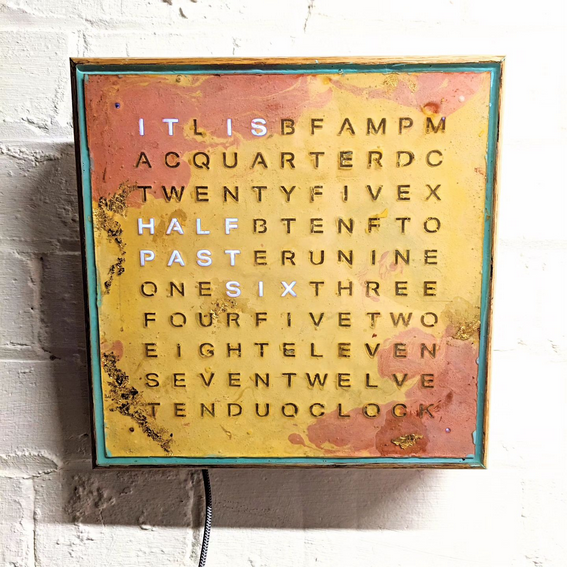 ITLISBFAMPM
ACQUARTERDC
TWENTYFIVEX
HALFBTENFTO
PASTERUNINE
ONESIXTHREE
FOURFIVETWO
EIGHTELEVEN
SEVENTWELVE
TENDUOCLOCK